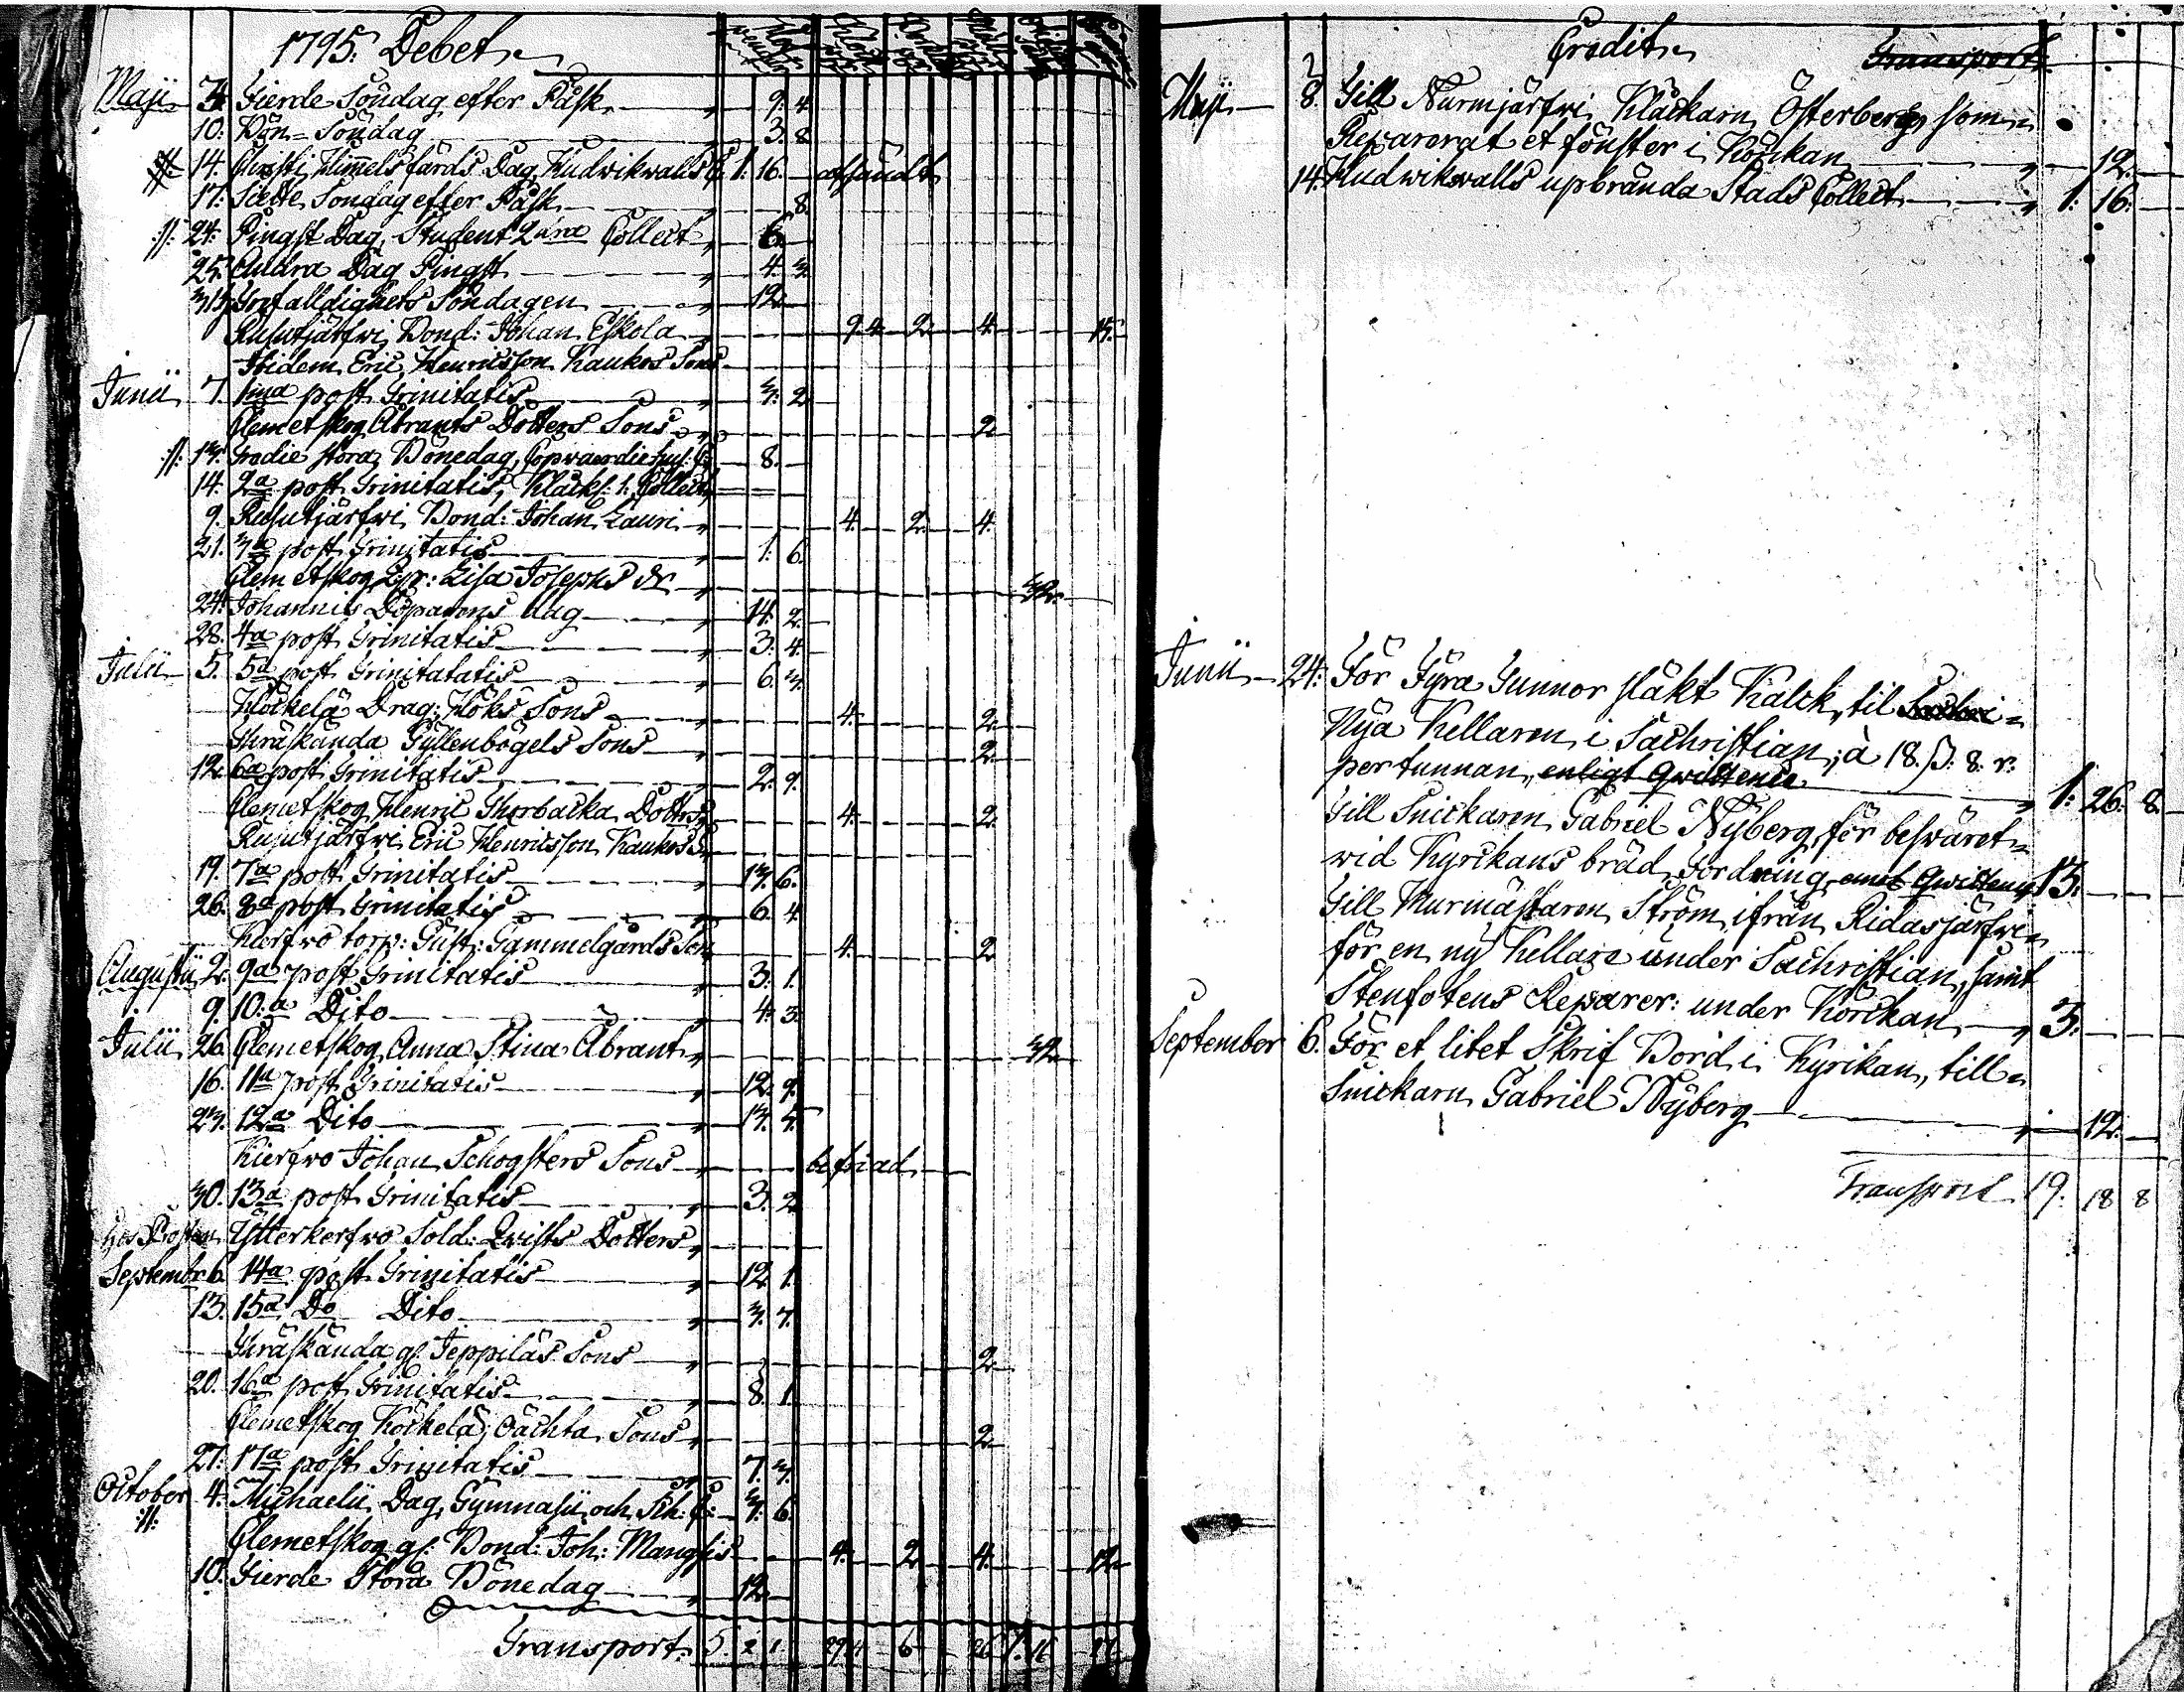 1795. Debet
Maji 3. Fierde Söndag efter Påsk 9. 4
10. Bön-Söndag 3. 8
14. Christi Himmelsfärds Dag, Hudwikwalls C. 1: 16. afsändt
17. Siette Söndag efter Påsk 8
:/: 24. Pingst Dag, Student Collect 6
25. Andra Dag Pingst 4. 3.
31. Trefalldighets Söndagen 12
Rusutjärfwi Bond: Johan Eskola 9. 4 2 4. 15.
Ibidem Eric Henricsson Kaukos Sons
Junii 7. 1ma post Trinitatis 3. 2
Clemetskog Abrants Dotters Sons 2
:/: 13. Tredie stora Bönedag, 8.
14. 2a post Trinitatis, Klåcks: 1. Collect
9. Rusutjärfwi Bond: Johan Lauri 4. 2 4.
21. 3a post Trinitatis 1: 6.
Clemetskog Lisa Josephs dr 32.
24. Johannis Döparens dag 14. 2.
28. 4a post Trinitatis 3. 4.
Julii 5. 5a post Trinitatatis 6. 3.
Klökelä Drag: Höks Sons 4. 2
Träskända Gyllenbögels Sons 2.
12. 6a post Trinitatis 2. 9.
Clemetskog Henric Skorbacka Dotters 4. 2
Rusutjärfwi Eric Henricsson Kaukos S.
19. 7a post Trinitatis 13. 6.
26. 8a post Trinitatis 6. 4
Kierfwo torp: Gust: Gammelgårds Son 4. 2
Augusti 2. 9a post Trinitatis 3. 1.
9. 10:a Dito 4. 3.
Julii 26. Clemetskog Anna Stina Abrant 32
16. 11a post Trinitatis 12. 9.
23. 12a Dito 13. 4.
Kierfwo Johan Schogsters Sons befriad
30. 13a post Trinitatis 3. 2
hos Prosten Ytterkerfwo Sold: Qvists Dotters
Septembr 6. 14a post Trinitatis 12. 1.
13. 15a Do Dito 3. 7.
Träskända gl. Jeppiläs Sons 2
20. 16a post Trinitatis 8. 1.
Clemetskog Körkelä, Sons 2
27. 17a post Trinitatis 7. 3.
October 4. Michaelii Dag, Gymnasii och Sch. C. 3. 6.
:/: Clemetskog gl. Bond: Joh: Mangsis 4. 2 4. 12
10. Fierde Stora Bönedag 12
Transport 5. 2 1. 29. 4 6 26 1. 16
Credit Transport
Maji 8. Till Nurmjärfwi Klåckarn Österberg, som
Reparerat et fönster i Körckan 12.
14. Hudwikswalls upbrända Stads Collect 1: 16.
Junii 24. För Fyra Tunnor släkt Kalck, til
Nya Kellaren i Sachristian, à 18. β: 8. r.
per tunnan, enligt Qwittence 1: 26: 8
Till Snickaren Gabriel Nyberg för beswäret
wid Kyrckans bräd Fordning, 13.
Till Murmästaren Ström, ifrån Ridasjärfwi
för en ny Kellare under Sachristian, samt
Stenfotens Reparer: under Körckan 3.
September 6. För et litet Skrif Bord i Kyrckan, till
Snickarn Gabriel Nyberg 12.
Transport 19. 18 8